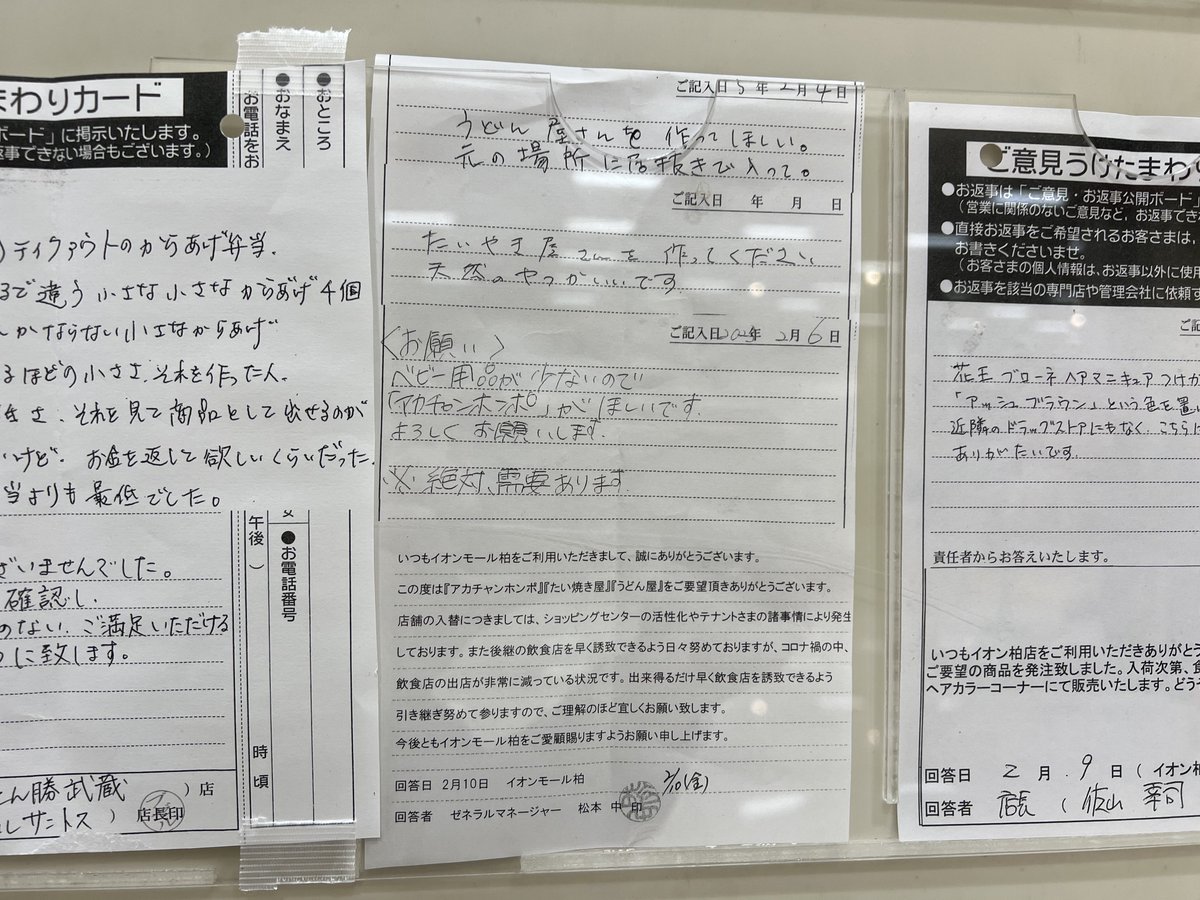 まわりカード
ボード」に掲示いたします。
返事できない場合もございます。）
●おところ
●おなまえ
お電話をお
テイクアウトのからあげ弁当。
るで違う小さな小さなからあげ4個
んかならない小さなからあげ
るほどの小ささ、それを作った人。
それを見て商品として出せるのが
いけど、お金を返して欲しいくらいだった。
当よりも最低でした。
午後
）
●お電話番号
時頃
ざいませんでした。
確認し、
のない、ご満足いただける
に致します。
とん勝武蔵 ）店
サニトス ） 店長印
ご記入日 5年 2月 4日
うどん屋さんを作ってほしい。
元の場所に居抜きで入って。
ご記入日 年 月 日
たいやき屋さんを作ってください
天然のやつがいいです
ご記入日2023年 2月 6日
〈お願い〉
ベビー用品が少ないので
「アカチャンホンポ」がほしいです。
よろしくお願いします。
※絶対、需要あります。
いつもイオンモール柏をご利用いただきまして、誠にありがとうございます。
この度は『アカチャンホンポ』『たい焼き屋』『うどん屋』をご要望頂きありがとうございます。
店舗の入替につきましては、ショッピングセンターの活性化やテナントさまの諸事情により発生
しております。また後継の飲食店を早く誘致できるよう日々努めておりますが、コロナ禍の中、
飲食店の出店が非常に減っている状況です。出来得るだけ早く飲食店を誘致できるよう
引き継ぎ努めて参りますので、ご理解のほど宜しくお願い致します。
今後ともイオンモール柏をご愛顧賜りますようお願い申し上げます。
回答日 2月10日 イオンモール柏 2/10(金)
回答者 ゼネラルマネージャー 松本 中 印
ご意見うけたまわり
●お返事は「ご意見・お返事公開ボード」
（営業に関係のないご意見など、お返事でき
●直接お返事をご希望されるお客さまは、
お書きくださいませ。
（お客さまの個人情報は、お返事以外に使用
●お返事を該当の専門店や管理会社に依頼す
ご記
花王 ブローネ ヘアマニキュア つけか
「アッシュブラウン」という色を置い
近隣のドラッグストアにもなく、こちらに
ありがたいです。
責任者からお答えいたします。
いつもイオン柏店をご利用いただきありがとう
ご要望の商品を発注致しました。入荷次第、食
ヘアカラーコーナーにて販売いたします。どうぞ
回答日 2月 9日（イオン
回答者 店長（佐山